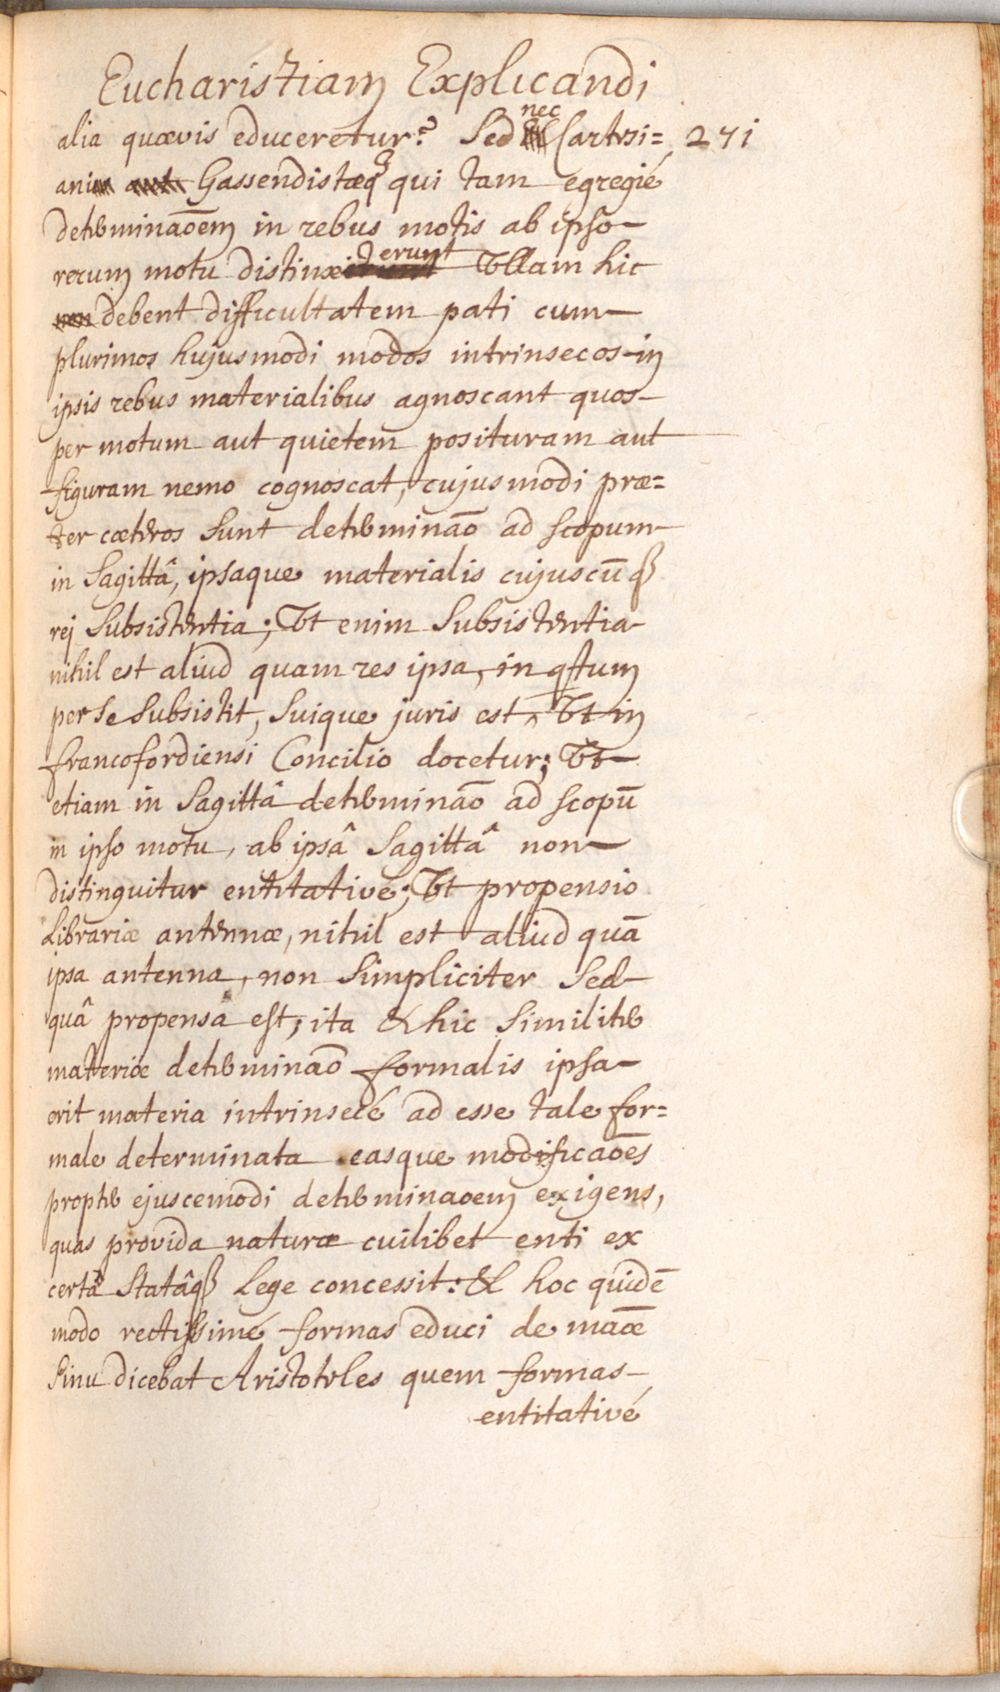 Eucharistiam Explicandi
alia quævis educeretur? Sed nec Cartesi= 271
ani Gassendistæq3 qui tam egregié
detĕminaōem in rebus motis ab ipso
rerum motu distinxerunt Vllam hic
debent difficultatem pati cum
plurimos hujusmodi modos intrinsecos in
ipsis rebus materialibus agnoscant quos
per motum aut quietem posituram aut
figuram nemo cognoscat, cujusmodi præ=
ter cæteros sunt determinaō ad scopum
in Sagittâ, ipsaque materialis cujuscūq3
rej Subsistentia; Vt enim Subsistentia
nihil est aliud quam res ipsa, in qȝtum
per se subsistit, Suique juris est, Vt in
francofordiensi Concilio docetur; Vt
etiam in Sagittâ determinaō ad scopū
in ipso motu, ab ipsâ Sagittâ non
distinguitur entitativé; Vt propensio
Librariæ antennæ, nihil est aliud quā
ipsa antenna, non Simpliciter Sed
quâ propensa est; ita & hic Similiter
materiæ determinaō formalis ipsa
erit materia intrinsecé ad esse tale for=
male determinata easque modificaōes
propter ejuscemodi determinaoem exigens,
quas provida naturæ cuilibet enti ex
certâ Statâq3 Lege concessit: & hoc quidē
modo rectissimé formas educi de maāe
Sinu dicebat Aristoteles quem formas
entitativé